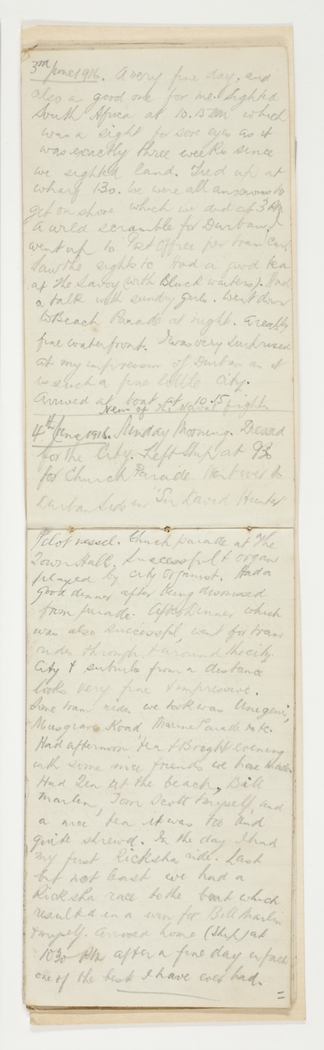 3rd June 1916. A very fine day, and
also a good one for me. Sighted
South Africa at 10.15 AM which
was a sight for sore eyes as it
was exactly three weeks since
we sighted land. Tied up at
wharf 1.30. We were all anxious to
get on shore which we did at 3 PM
A wild scramble for Durban,
went up to Post Office per tram car
Saw the sights &c Had a good tea
at The Savoy (with Black waiters). Had
a talk with sundry girls. Went down
to Beach Parade at night. A really
fine waterfront. I was very surprised
at my impression of Durban as it
is such a fine little City.
Arrived at boat at 10.15
News of the Naval fight
4th June 1916. Sunday Morning. Dressed
for the City. Left Ship at 9.30
for Church Parade. Went over to
Durban side in Sir David Hunter
Pilot vessel. Church parade at The
Town Hall, Successful & organ
played by city organist. Had a
good dinner after being dismissed
from parade. After Dinner which
was also successful, went for tram
rides through & around the city.
City & suburbs from a distance
looks very fine & impressive.
Some tram rides we took was Umgeni,
Musgrave Road, Marine Parade etc.
Had afternoon Tea & Bright evening
with some nice friends we have made.
Had Tea at the beach, Bill
Marlin, Tom Scott & myself, and
a nice tea it was too and
quite shrewd. In the day I had
my first Ricksha ride. Last
but not least we had a
Ricksha race to the boat which
resulted in a win for Bill Marlin
& myself. Arrived home (ship) at
10.30 PM after a fine day in fact
one of the best I have ever had.